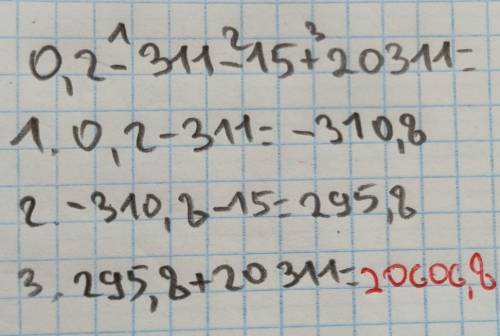 0,2 -¹ 311 -² 15 +³ 20311 =
1. 0,2 - 311 = -310,8
2. -310,8 - 15 = 295,8
3. 295,8 + 20311 = 20606,8